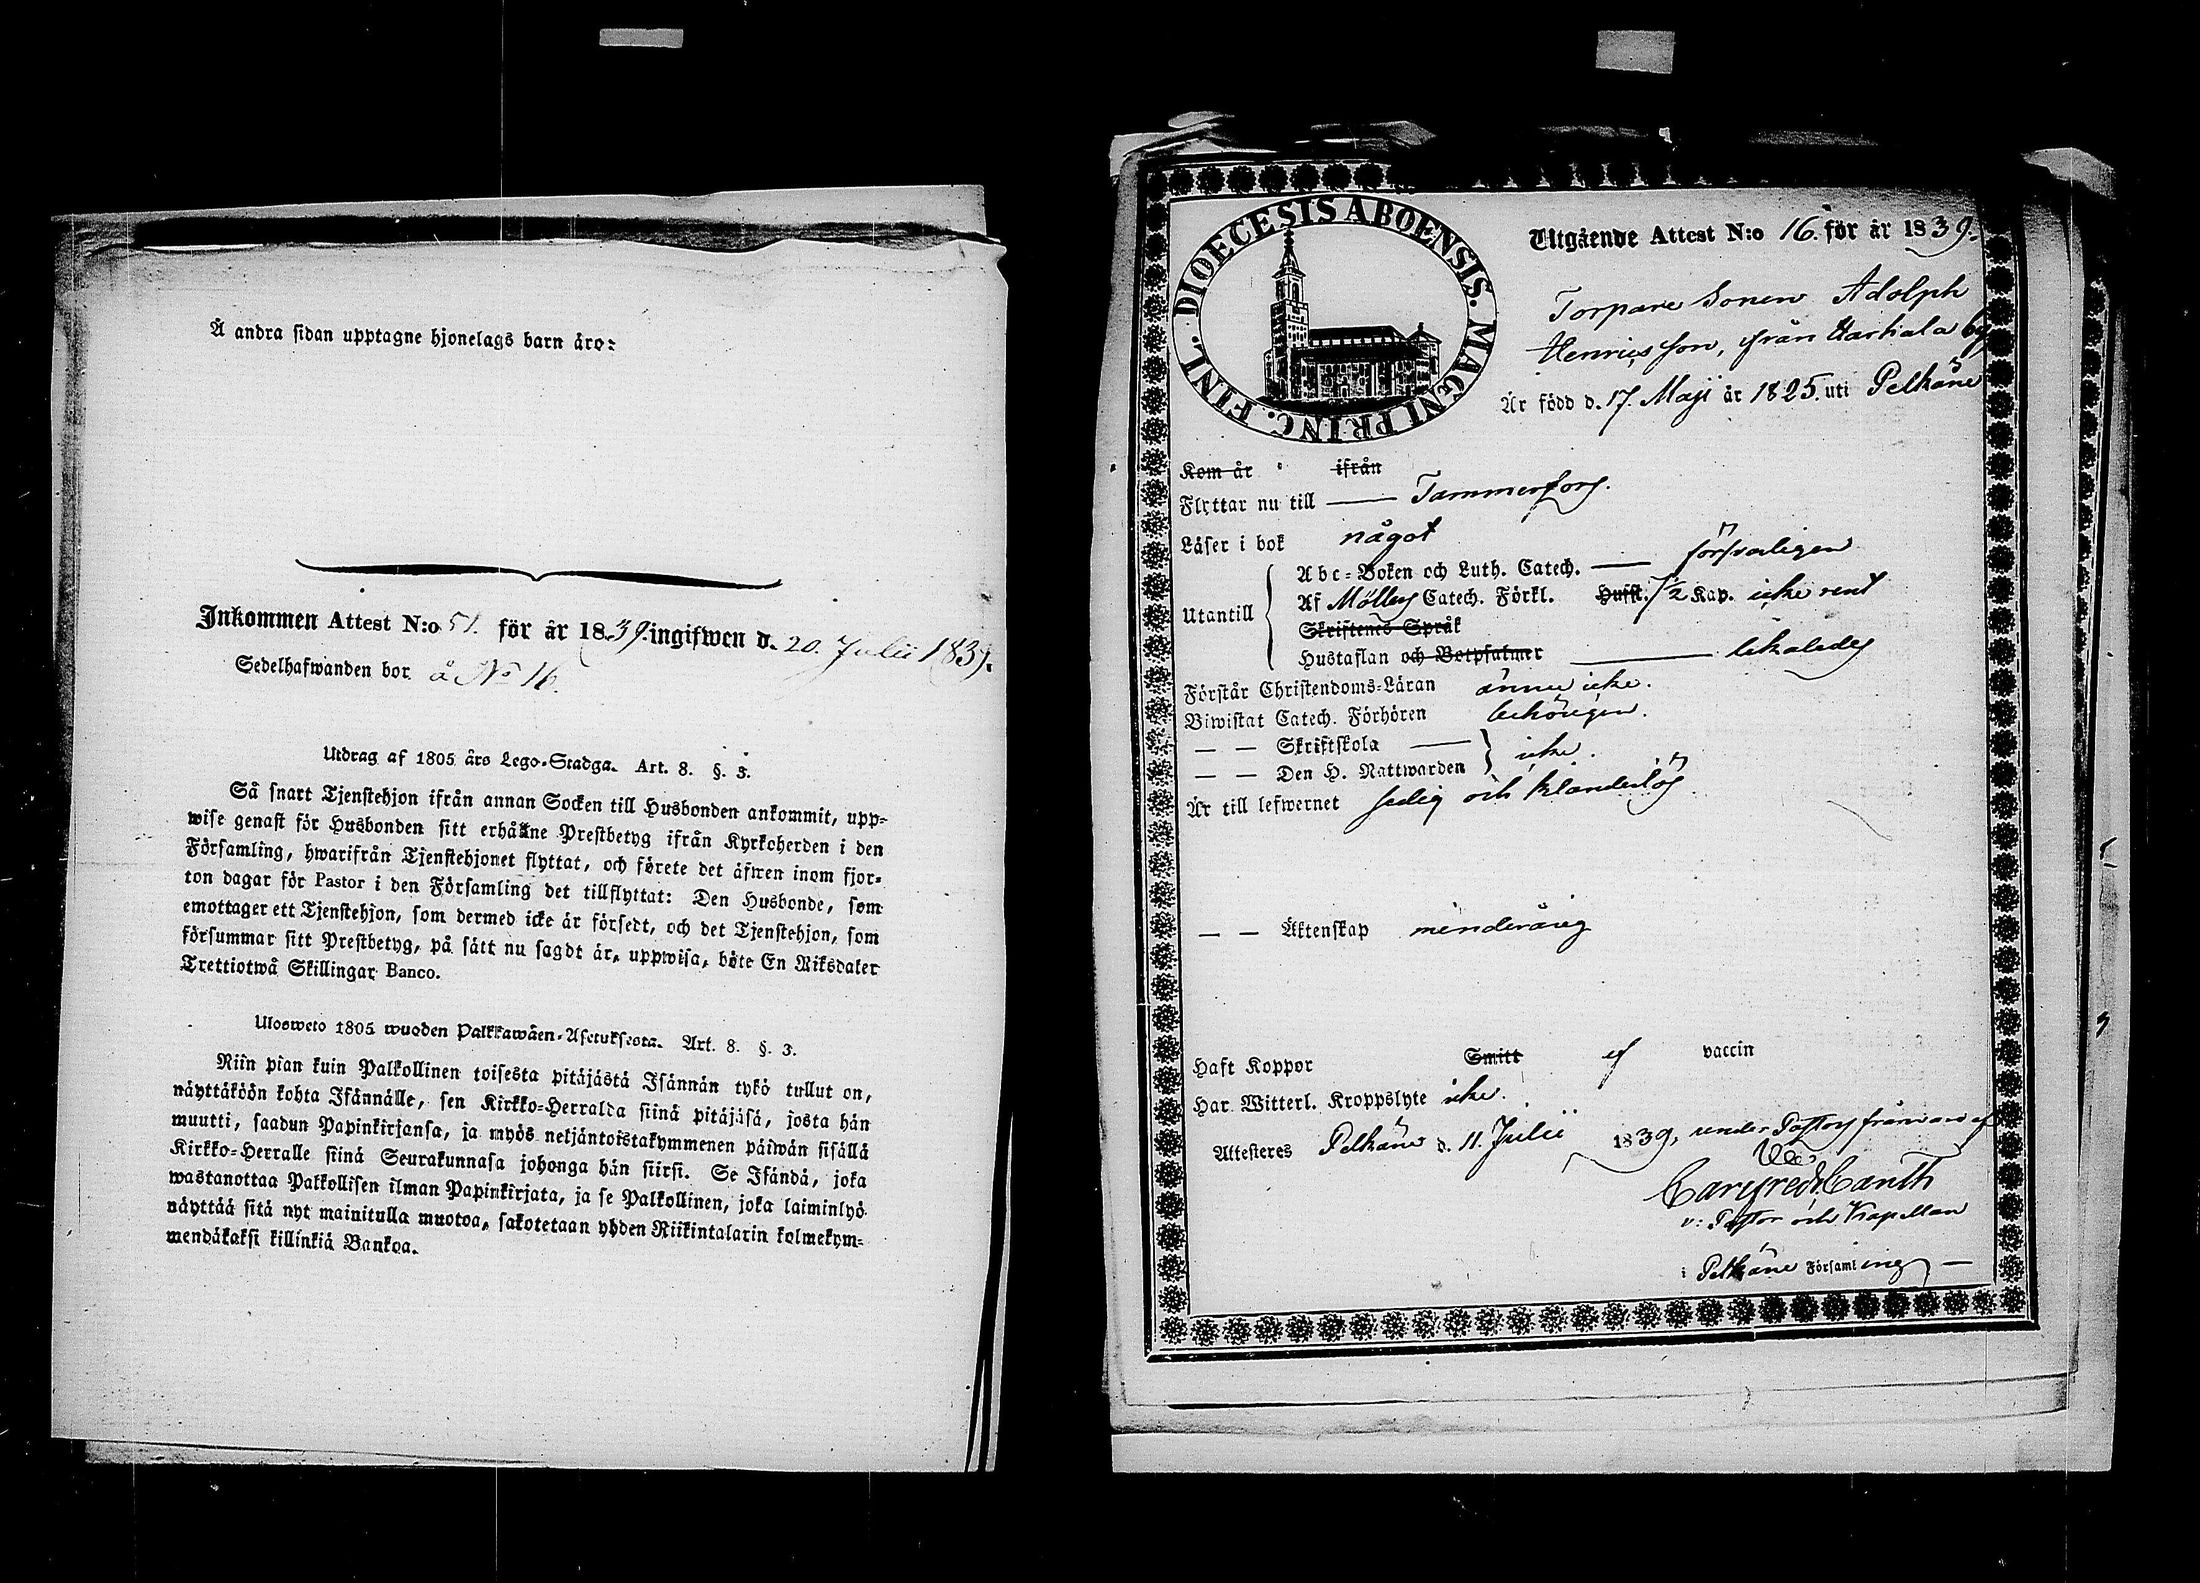 Å andra sidan upptagne hjonelags barn äro:
Inkommen Attest N:o 51. för år 1839. ingifwen d. 20. Julii 1839.
Sedelhafwanden bor å No 16.
Utdrag af 1805 års Lego-Stadga. Art. 8. §. 3.
Så snart Tjenstehjon ifrån annan Socken till Husbonden ankommit, upp-
wise genast för Husbonden sitt erhållne Prestbetyg ifrån Kyrkoherden i den
Församling, hwarifrån Tjenstehjonet flyttat, och förete det äfwen inom fjor-
ton dagar för Pastor i den Församling det tillflyttat: Den Husbonde, som
emottager ett Tjenstehjon, som dermed icke är försedt, och det Tjenstehjon, som
försummar sitt Prestbetyg, på sätt nu sagdt är, uppwisa, böte En Riksdaler
Trettiotwå Skillingar Banco.
Ulosweto 1805 wuoden Palkkawäen-Asetuksesta. Art. 8. §. 3.
Niin pian kuin Palkollinen toisesta pitäjästä Isännän tykö tullut on,
näyttäköön kohta Isännälle, sen Kirkko-Herralda siinä pitäjäsä, josta hän
muutti, saadun Papinkirjansa, ja myös neljäntoistakymmenen päiwän sisällä
Kirkko-Herralle siinä Seurakunnasa johonga hän siirsi. Se Isändä, joka
wastanottaa Palkollisen ilman Papinkirjata, ja se Palkollinen, joka laiminlyö
näyttää sitä nyt mainitulla muotoa, sakotetaan yhden Riikintalarin kolmekym-
mendäkaksi killinkiä Bankoa.
DIOECESIS ABOENSIS. MAGNI PRINC. FINL.
Utgående Attest N:o 16. för år 1839.
Torpare Sonen Adolph
Henricsson, ifrån Harhiala by
Är född d. 17. Maji år 1825. uti Pelkäne
Kom år ifrån
Flyttar nu till — Tammerfors.
Läser i bok något
Utantill
Abc-Boken och Luth. Catech. — försvarligen
Af Möllers Catech. Förkl. Hufst. 1/2 Kap. icke rent
Skriftenes Språk
Hustaflan och Botpsalmer — likaledes
Förstår Christendoms-Läran ännu icke.
Biwistat Catech. Förhören behörigen.
— — Skriftskola —
— — Den H. Nattwarden } icke.
Är till lefwernet sedig och klanderlös
— — Äktenskap minderårig
Haft Koppor Smitt af vaccin
Har Witterl. Kroppslyte icke.
Attesteres Pelkäne d. 11. Julii 1839, under Pastors frånvaro af
Carl Fredr. Canth
v: Pastor och Kapellan
i Pelkäne Församling —